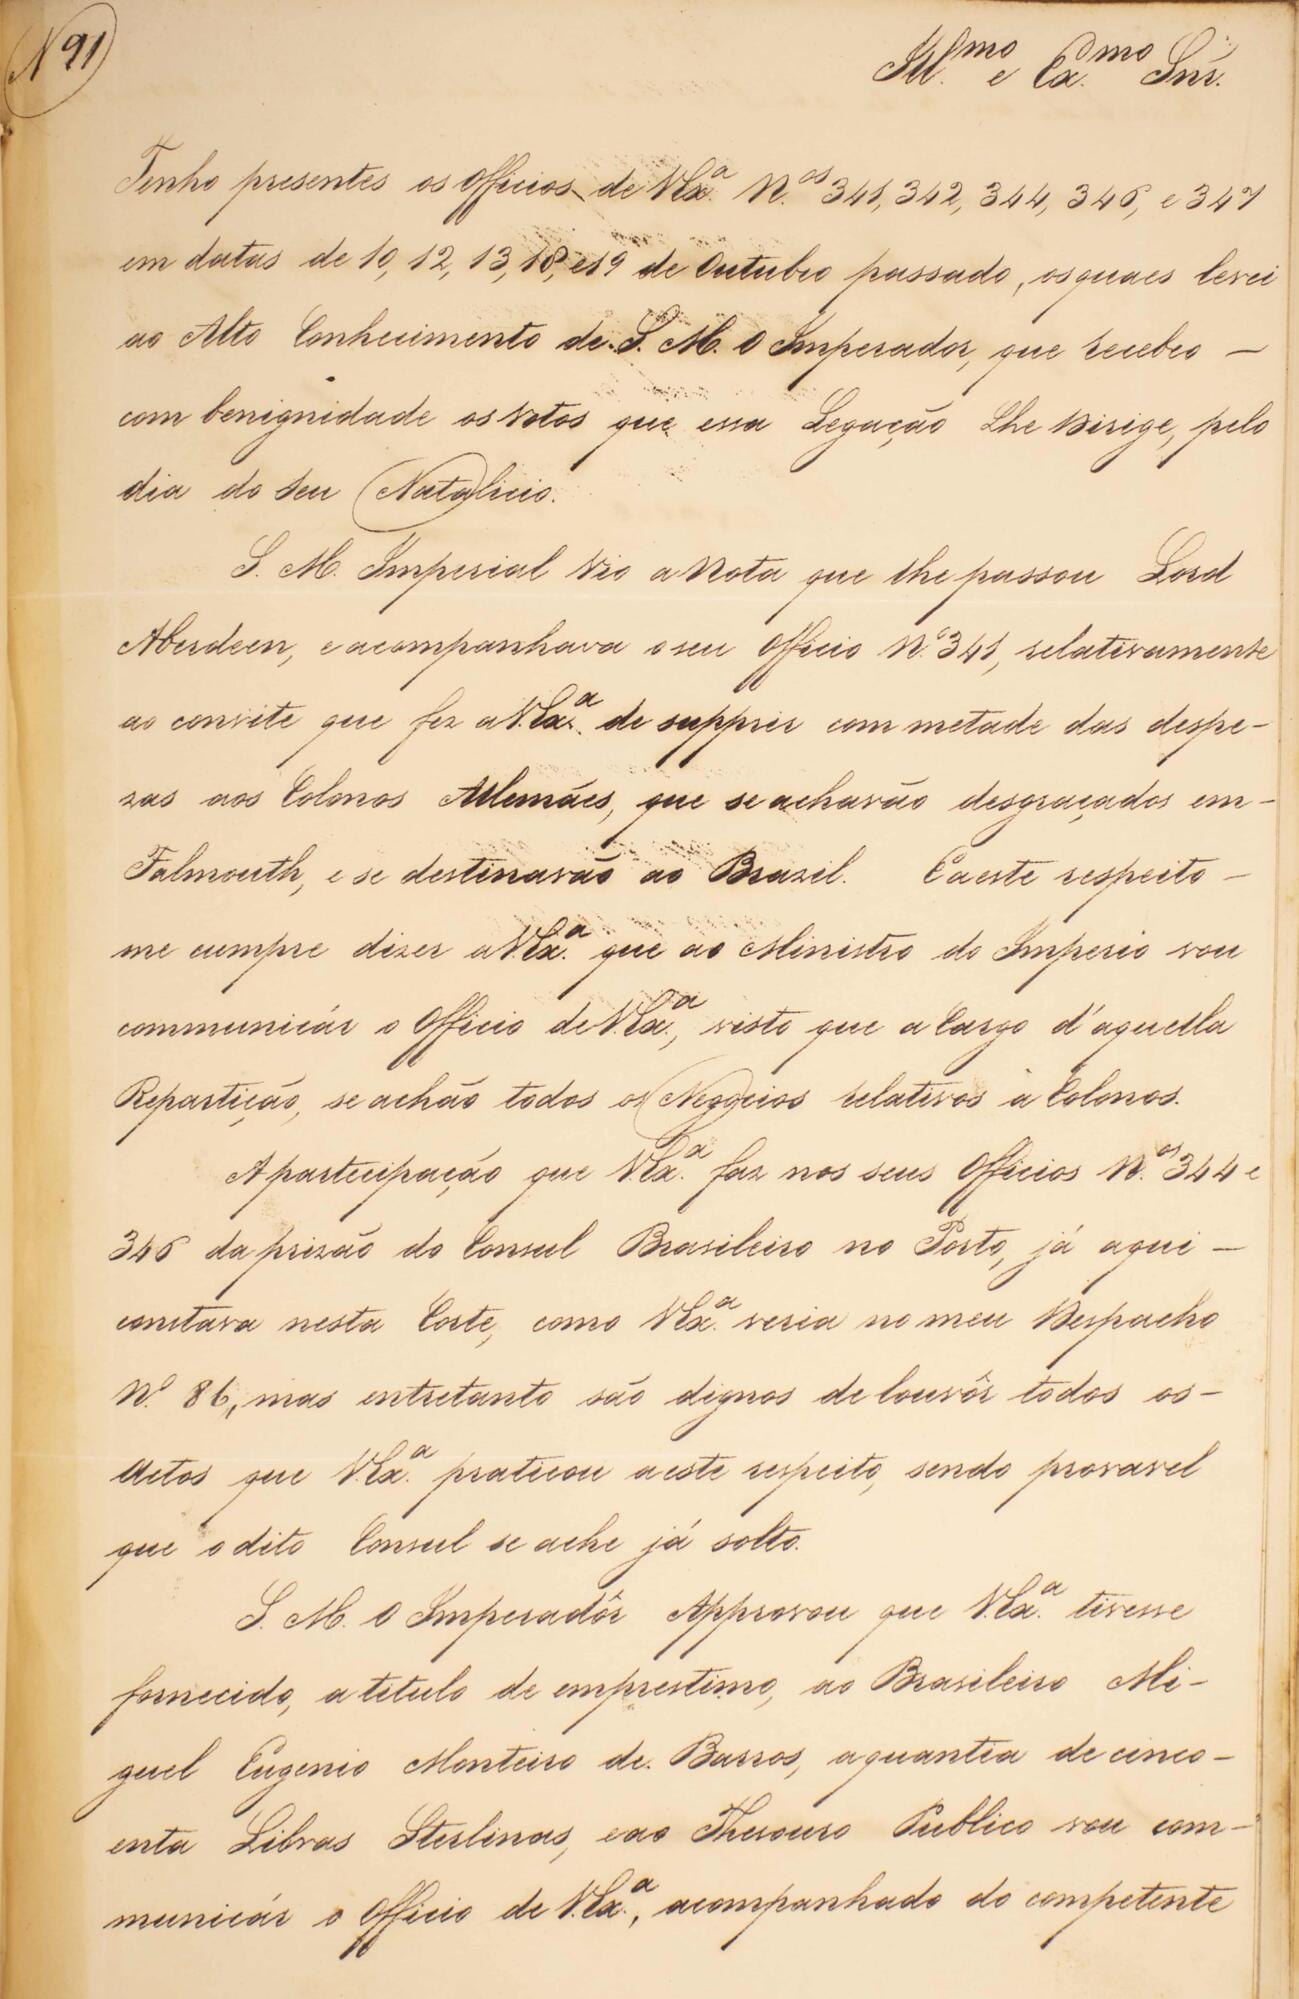 N 91
Ill.mo e Ex.mo Snr.
Tenho presentes os Officios de V.Ex.a N.os 341, 342, 344, 346, e 347
em datas de 10, 12, 13, 18, e 19 de Outubro passado, os quaes levei
ao Alto Conhecimento de S. M. O Imperador, que recebeo —
com benignidade os Votos que essa Legação Lhe Dirige, pelo
dia do Seu Natalicio.
S. M. Imperial Vio a Nota que lhe passou Lord
Aberdeen, e acompanhava o seu Officio N.º 341, relativamente
ao convite que fez a V.Ex.a de supprir com metade das despe-
zas aos Colonos Allemães, que se achavão desgraçados em -
Falmouth, e se destinavão ao Brazil. E a este respeito -
me cumpre dizer a V.Ex.a que ao Ministro do Imperio vou
communicár o Officio de V.Ex.a, visto que a Cargo d'aquella
Repartição, se achão todos os Negocios relativos a Colonos.
A partecipação que V.Ex.a faz nos seus Officios N.os 344 e
346 da prizão do Consul Brasileiro no Porto, já aqui -
constava nesta Corte, como V.Ex.a veria no meu Despacho
N.º 86, mas entretanto são dignos de louvôr todos os -
Actos que V.Ex.a praticou a este respeito, sendo provavel
que o dito Consul se ache já solto.
S. M. O Imperadôr Approvou que V.Ex.a tivesse
fornecido, a titulo de emprestimo, ao Brasileiro Mi-
guel Eugenio Monteiro de Barros, a quantia de cinco-
enta Libras Sterlinas, e ao Thesouro Publico vou com-
municár o Officio de V.Ex.a, acompanhado do competente